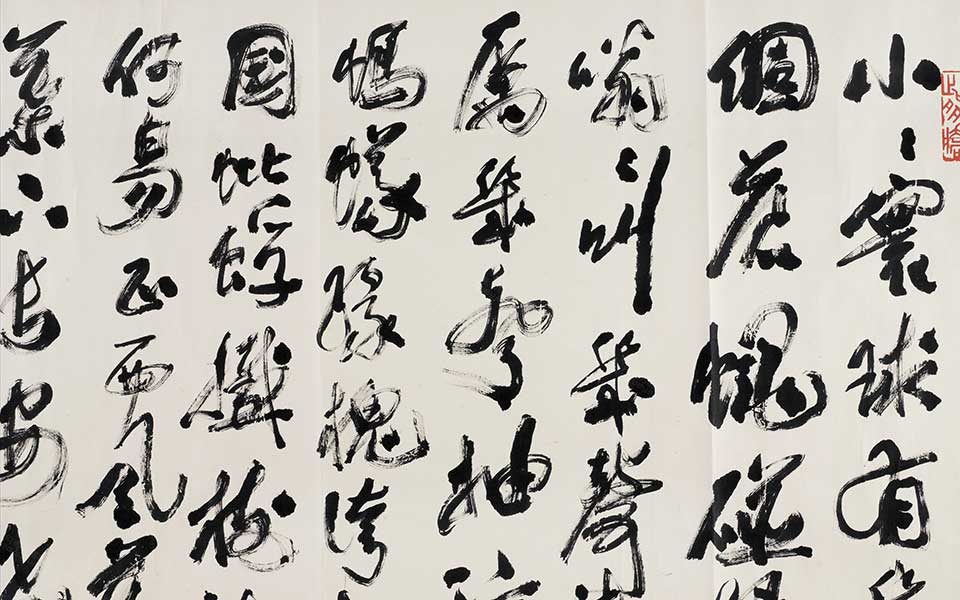 小〻寰球有幾
個蒼蠅碰壁
嗡〻叫幾聲凄
厲幾聲抽泣
螞蟻緣槐誇
國蚍蜉撼樹
何易正西風落
葉下長安飛